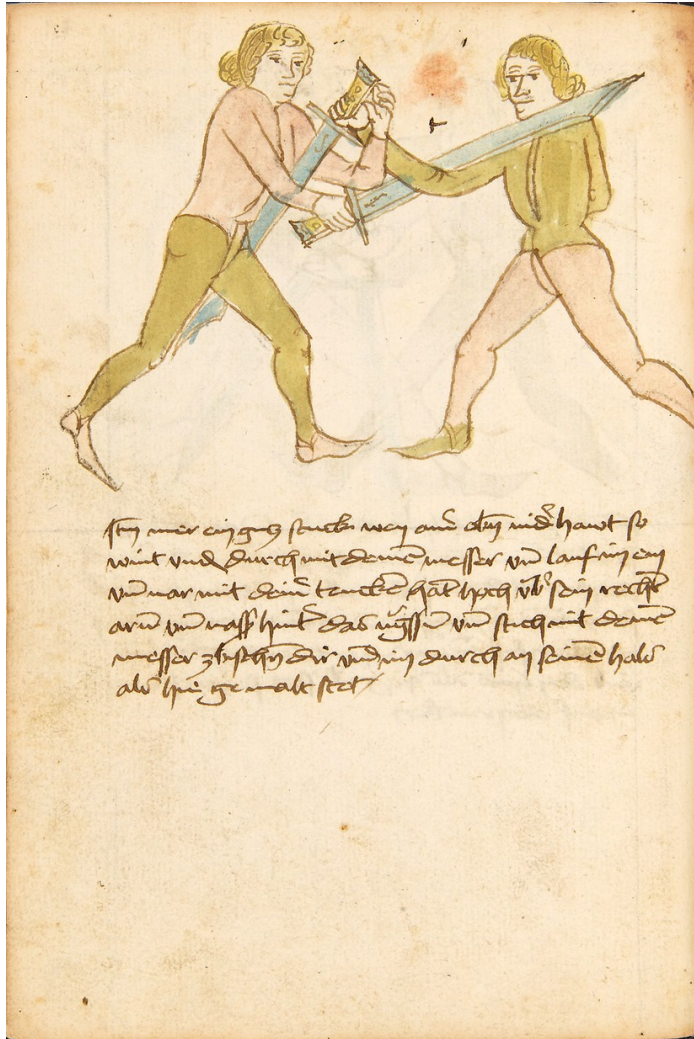 Itm mer ein gucz stuck wen ainr obn nidr hawt so
wint vnd durch mit deinē messer vn̄ lauf im ein
vn̄ var mit deinr tencken hāt hoch vbr sein rechtē
arm vn̄ vass hintr das gessm vn̄ stich mit deinē
messer zbischn dir vnd im durch an seinē hals
als hie gemalt stet